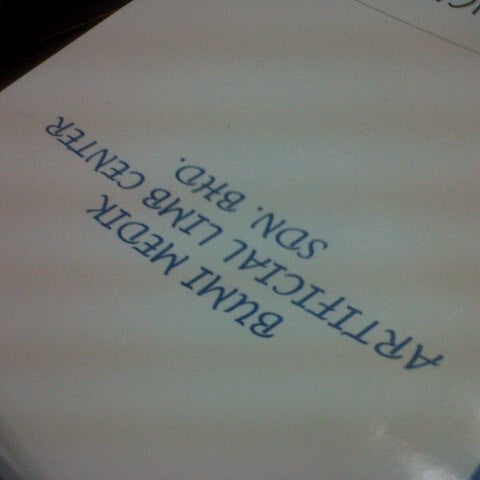 BUMI MEDIK
ARTIFICIAL LIMB CENTER
SDN. BHD.